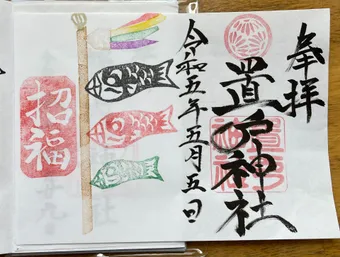 奉拝
置戸神社
令和五年五月五日
招福